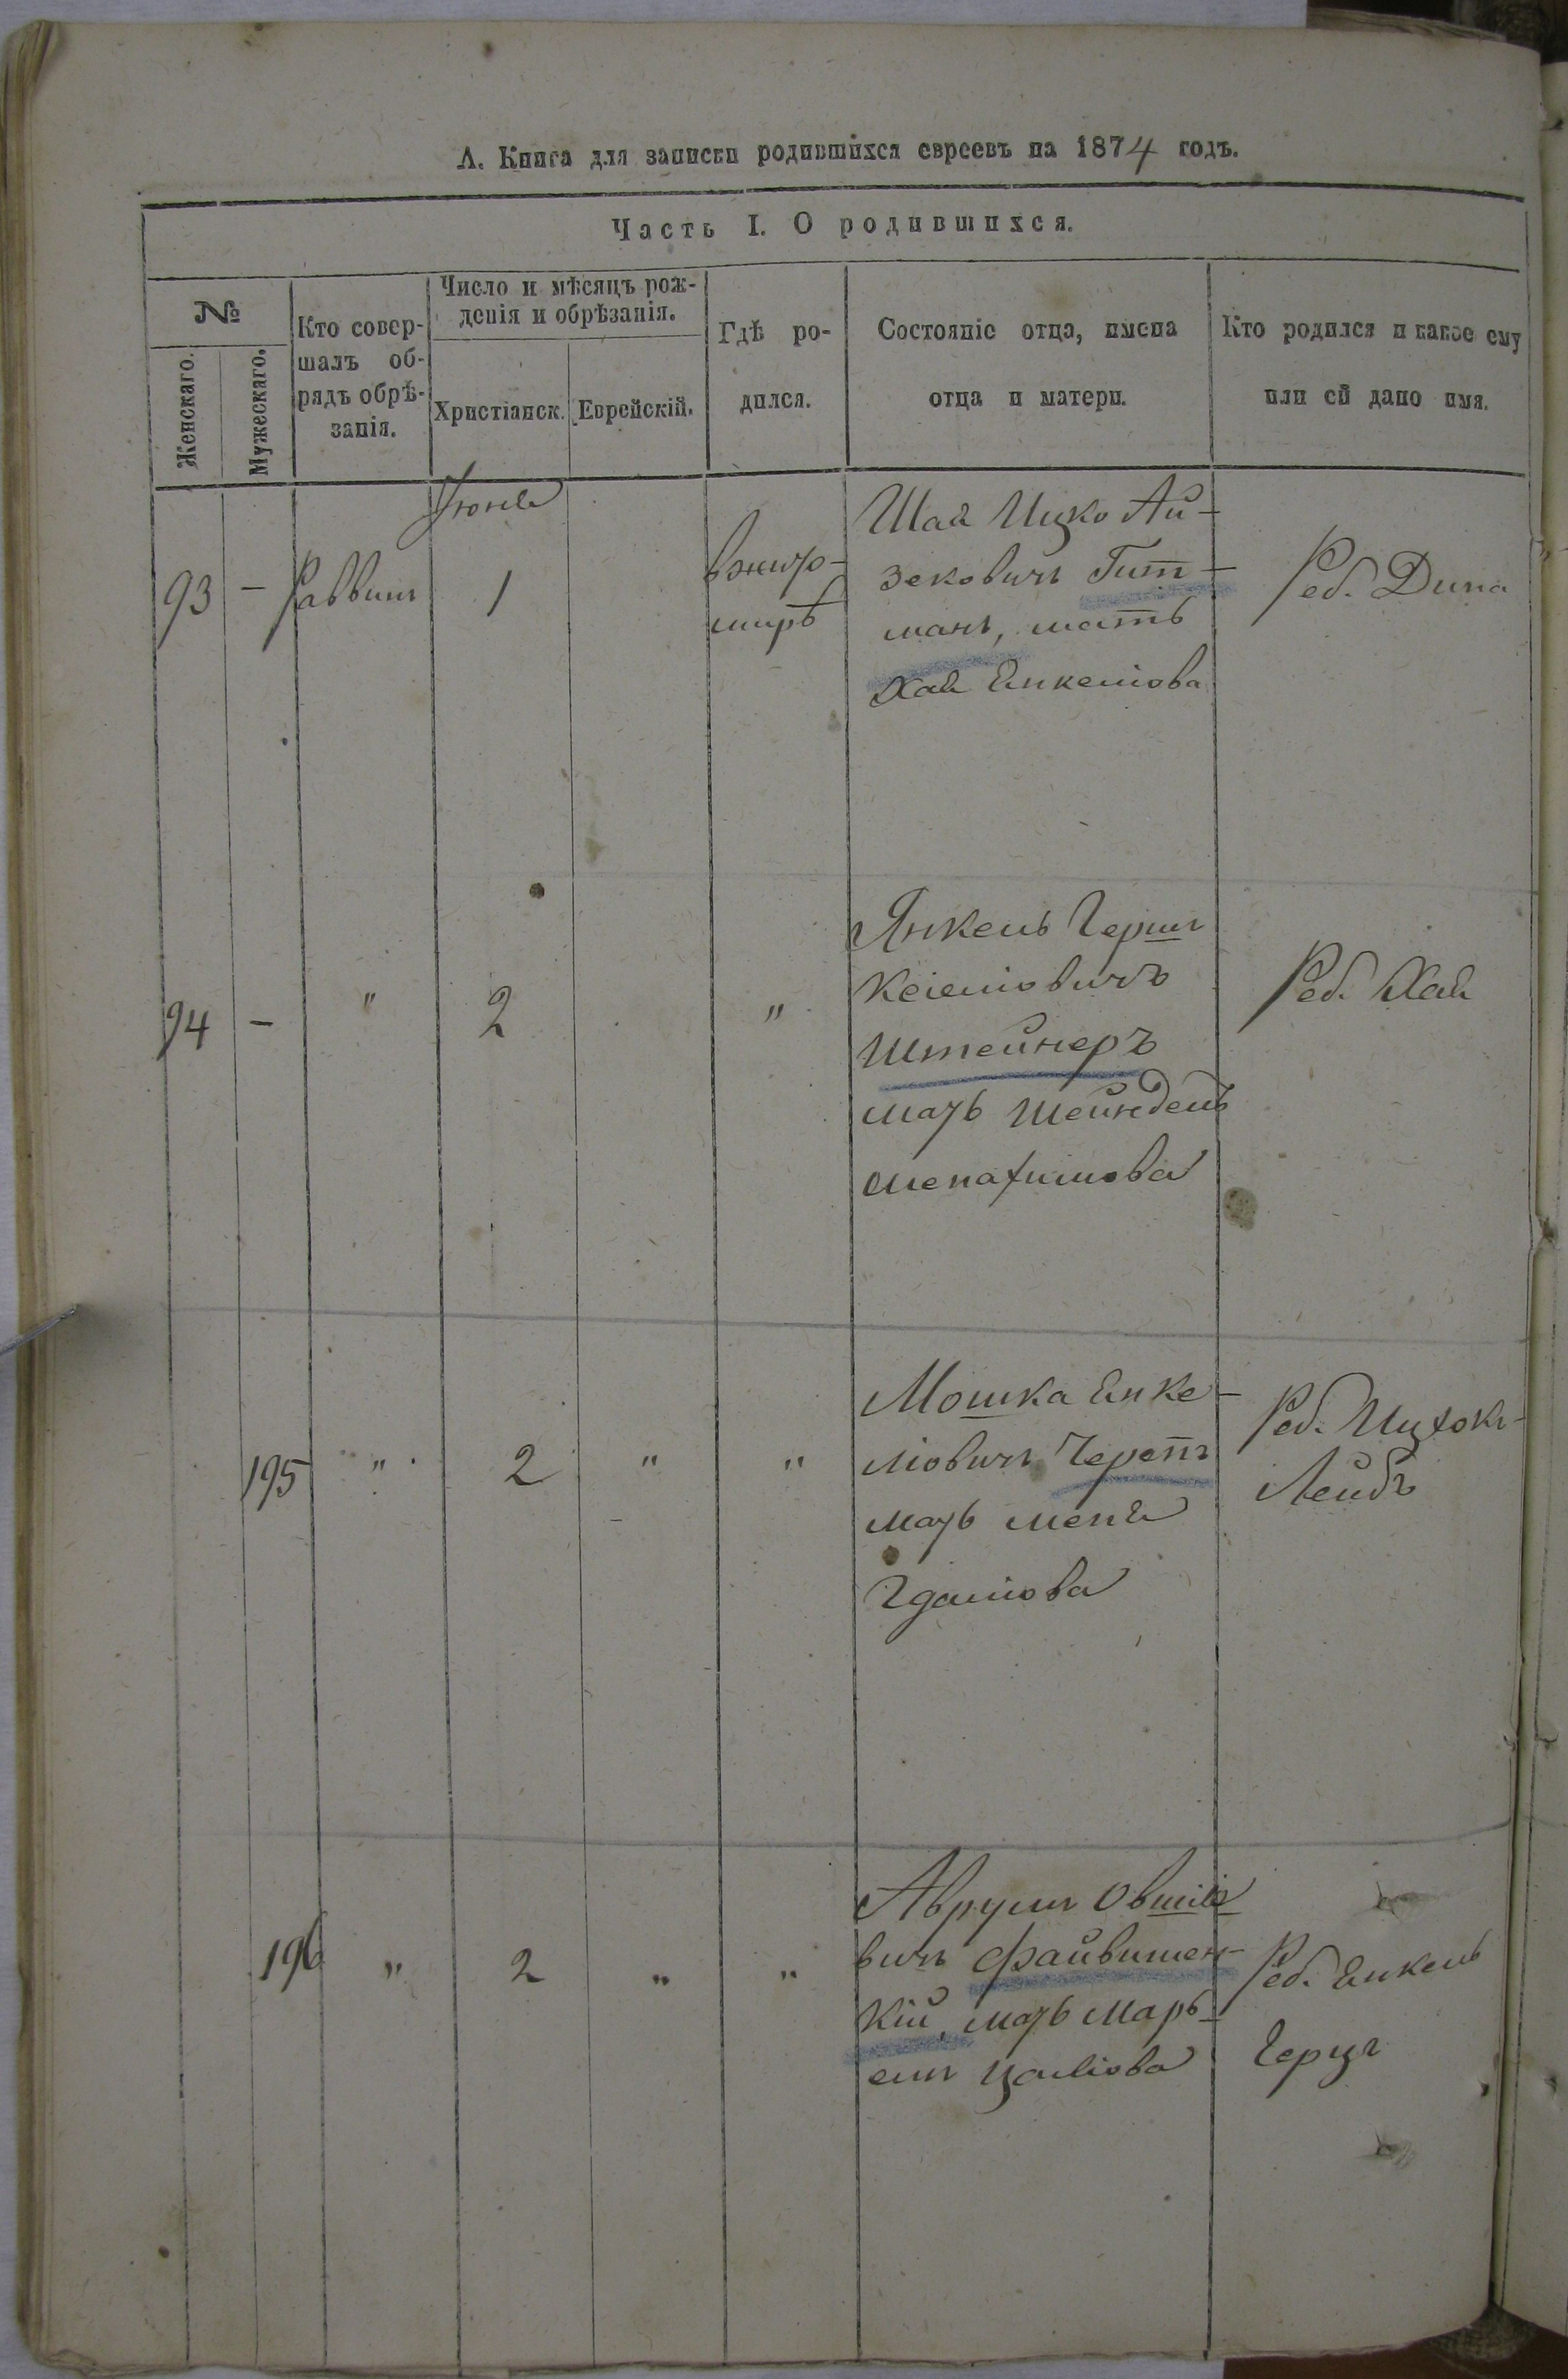 А. Книга для записки родившихся евреевъ на 1874 годъ.
Часть I. О родившихся.
№
Женскаго.
Мужескаго.
Кто совер-
шалъ об-
рядъ обрѣ-
занія.
Число и мѣсяцъ рож-
денія и обрѣзанія.
Христіанск.
Еврейскій.
Гдѣ ро-
дился.
Состояніе отца, имена
отца и матери.
Кто родился и какое ему
или ей дано имя.
Іюня
93 - Раввинъ 1
в жито-
мирѣ
Шая Ицко Ай-
зековичъ Гит-
манъ, мать
Хая Енкеліова
Реб. Дина
94 - " 2 "
Янкель Герш
Штейнеръ
мать Шейндель
Менахимова
Реб. Хая
195 " 2 " "
Мошка Енке-
ліовичъ Черепъ
мать Меня
Гдаліова
Реб. Ицхокъ-
Лейбъ
196 " 2 " "
Аврумъ Овшіе
вичъ
кій, мать Марь-
емъ Цаліова
Реб. Енкель
Герцъ